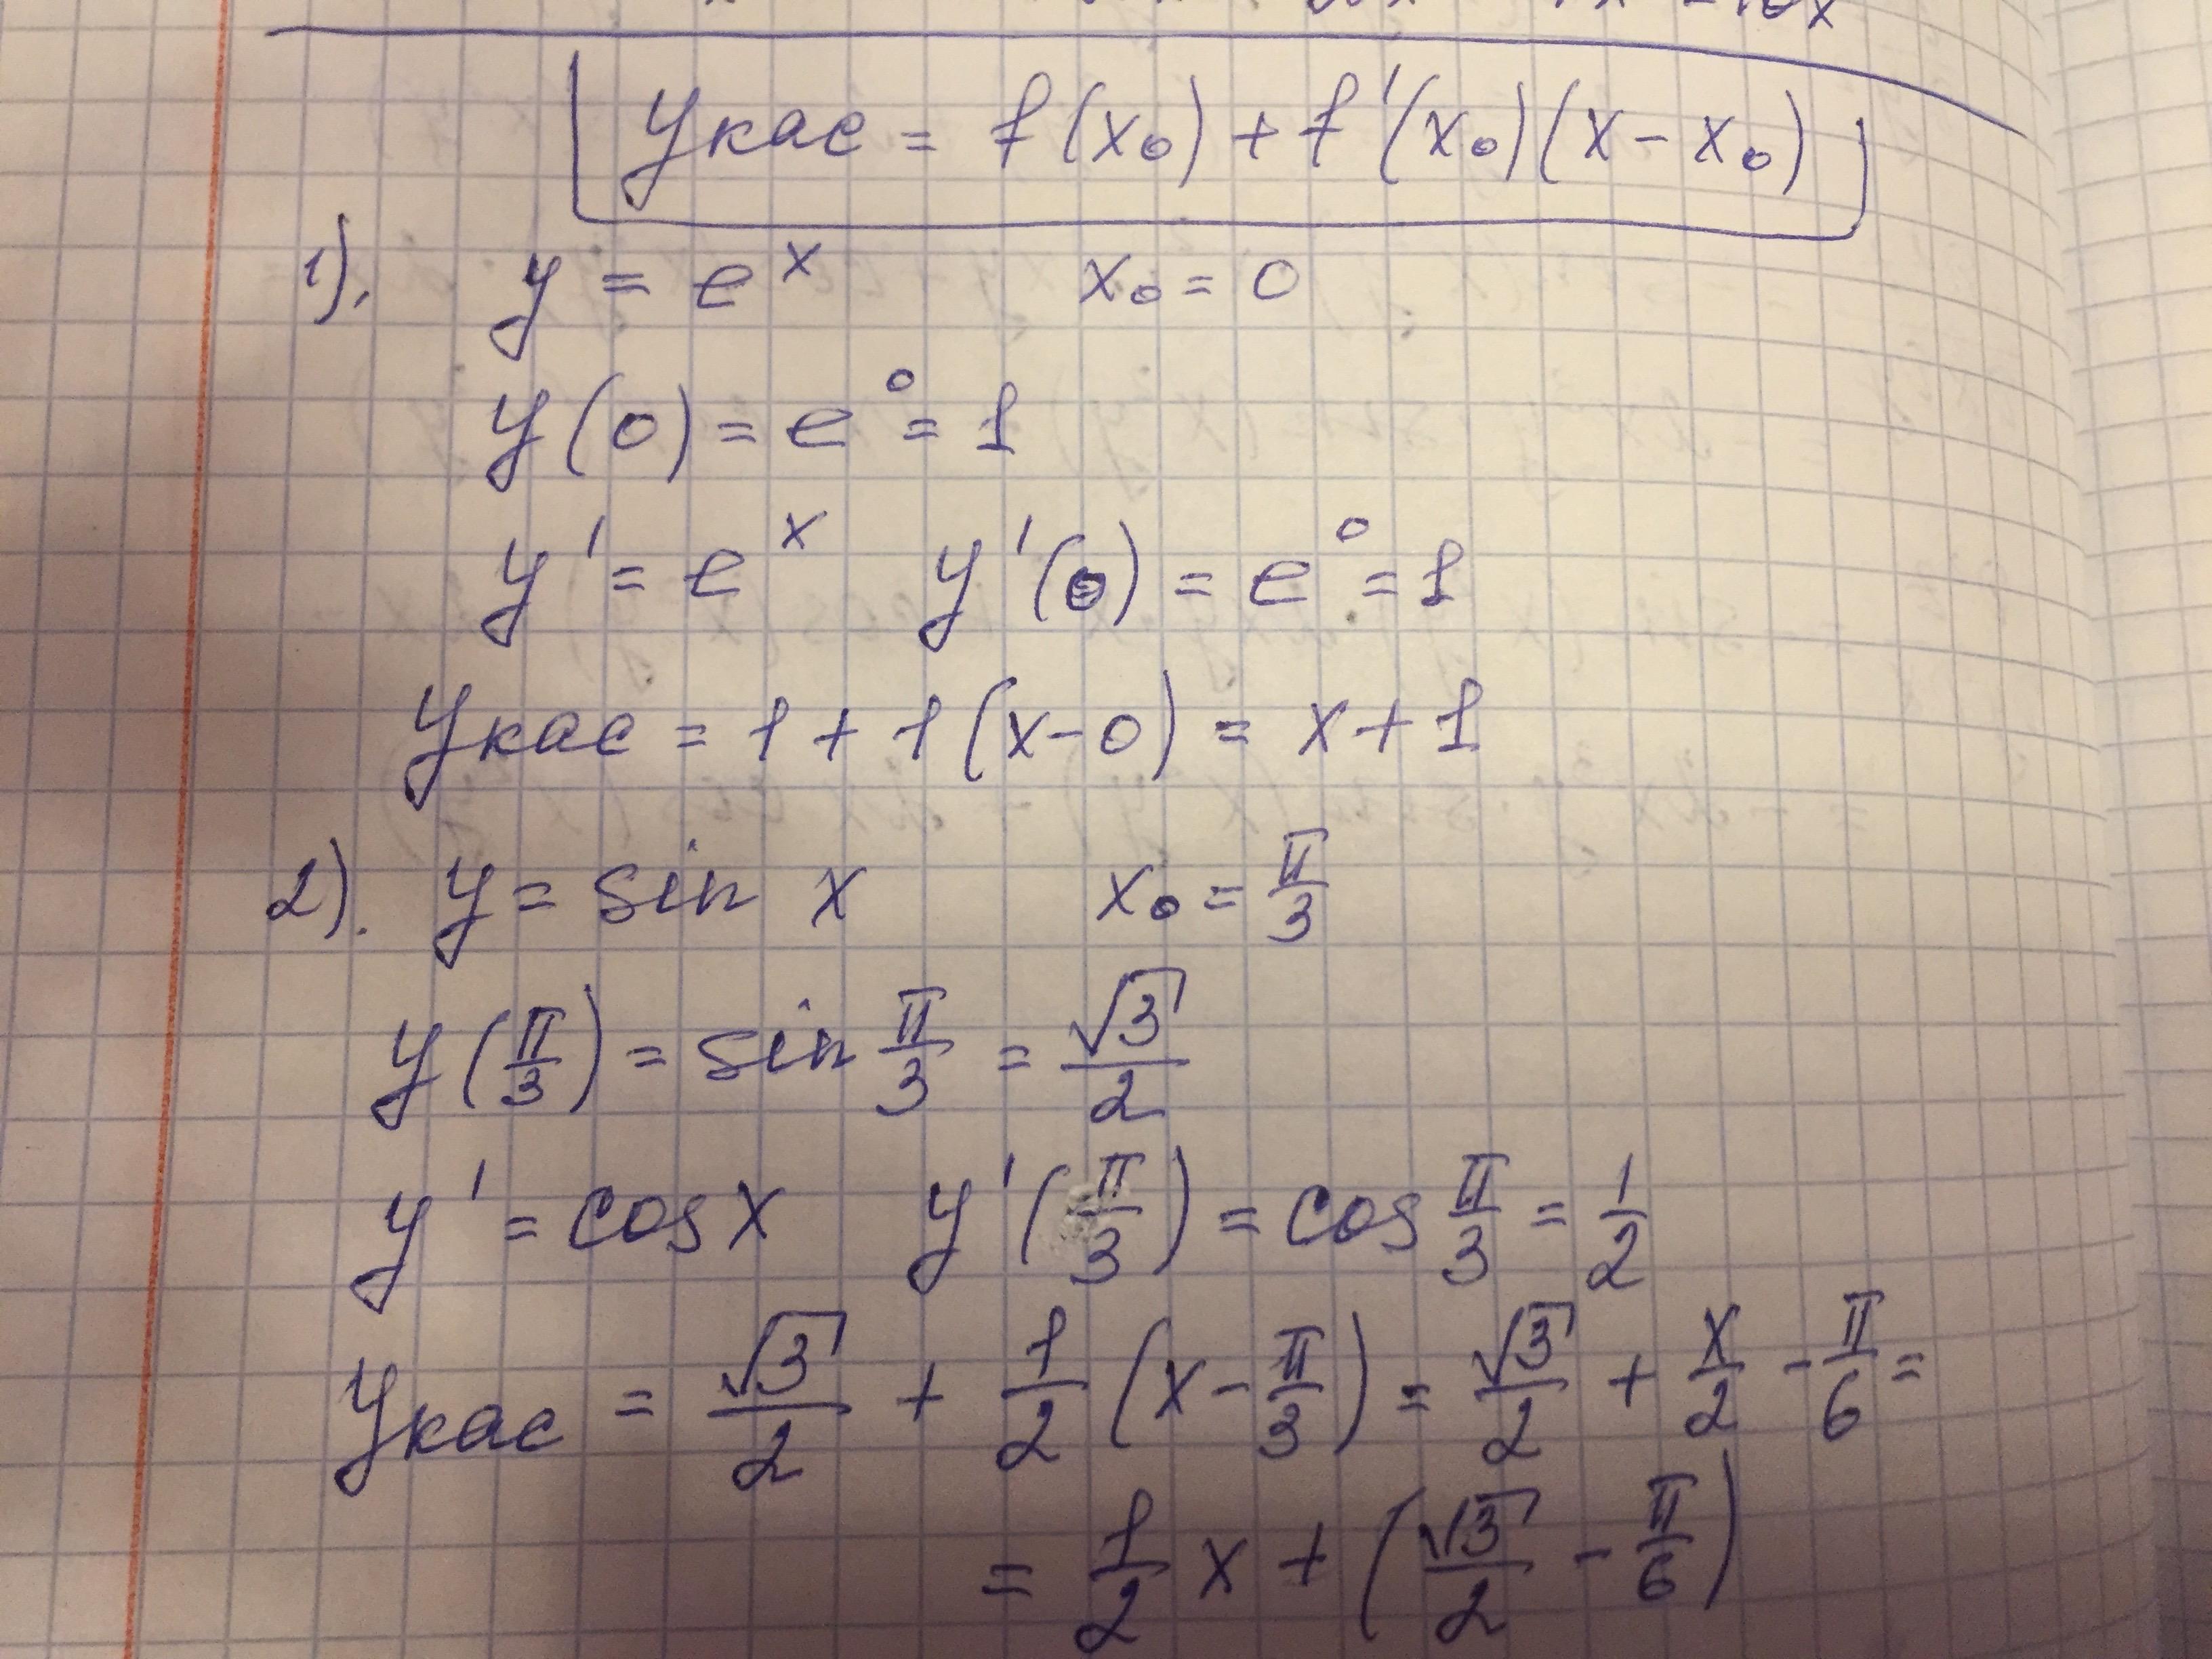 yкас = f(x₀) + f'(x₀)(x - x₀)
1). y = eˣ x₀ = 0
y(0) = e⁰ = 1
y' = eˣ y'(0) = e⁰ = 1
yкас = 1 + 1(x-0) = x+1
2). y = sin x x₀ = π/3
y(π/3) = sin π/3 = √3/2
y' = cos x y'(π/3) = cos π/3 = 1/2
yкас = √3/2 + 1/2 (x - π/3) = √3/2 + x/2 - π/6 =
= 1/2 x + (√3/2 - π/6)